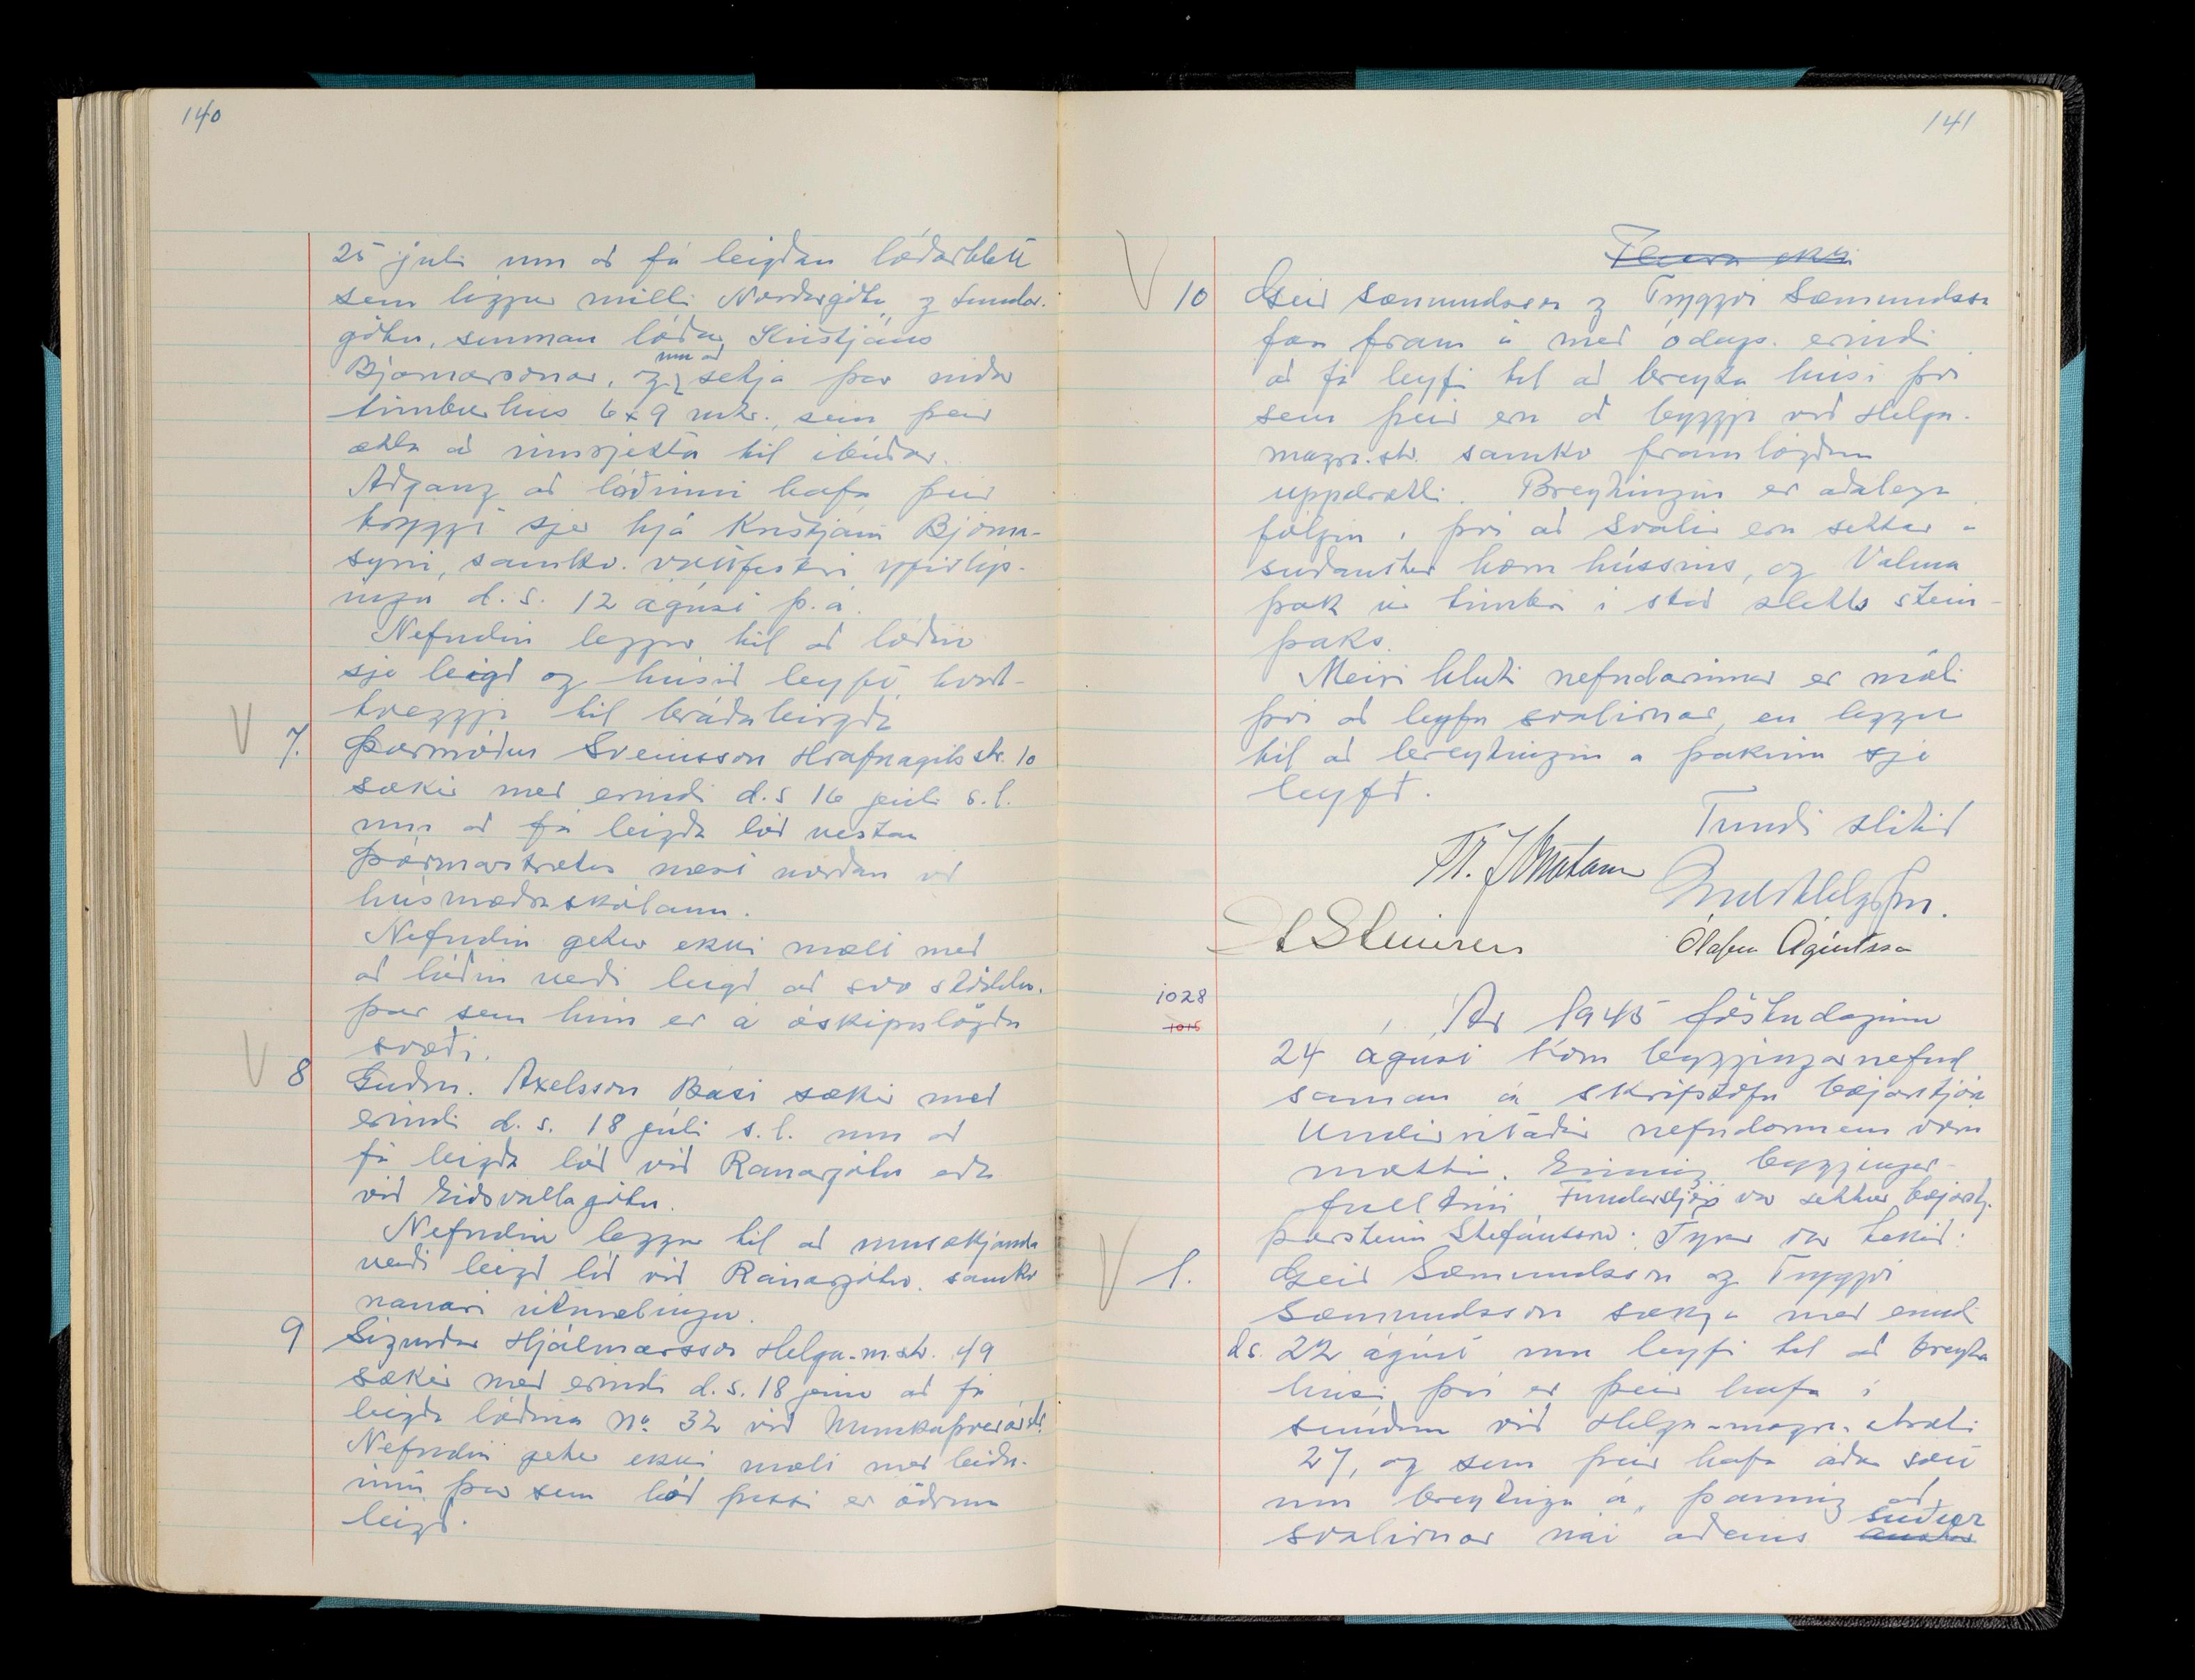 140
25 júlí um að fá leigðan lóðarblett
sem liggur milli Norðurgötu, og Lundar-
götu, sunnan lóðar Kristjáns
Bjarnarsonar, og um að setja þar niður
timburhús 6x9 mtr., sem þeir
ætla að innrjetta til íbúðar.
Aðgang að lóðinni hafa þeir
tryggt sjer hjá Kristjáni Bjarna-
syni, samkv. vottfestri yfirlýs-
ingu d.s. 12 ágúst þ.á.
Nefndin leggur til að lóðin
sje leigð og húsið leyft, hvort-
tveggja til bráðabirgða
V 7. Þormóður Sveinsson Hrafnagilsstr. 10
sækir með erindi d.s 16 júlí s.l.
um að fá leigða lóð vestan
Þórunnarstrætis næst norðan við
húsmæðraskólann.
Nefndin getur ekki mælt með
að lóðin verði leigð að svo stöddu.
þar sem hún er á óskipulögðu
svæði.
V 8 Guðm. Axelsson Bási sækir með
erindi d.s. 18 júlí s.l. um að
fá leigða lóð við Ránargötu eða
við Eiðsvallagötu.
Nefndin leggur til að umsækjanda
verði leigð lóð við Ránargötu. samkv
nánari útmælingu.
9 Sigurður Hjálmarsson Helga-m.str. 49
sækir með erindi d.s. 18 júní að fá
leigða lóðina No. 32 við Munkaþverárstr.
Nefndin getur ekki mælt með beiðn-
inni þar sem lóð þessi er öðrum
leigð.
141
Fleira ekki
V 10 Geir Sæmundsson og Tryggvi Sæmundsson
fara fram á með ódags. erindi
að fá leyfi til að breyta húsi því
sem þeir eru að byggja við Helga-
magr.str. samkv framlögðum
uppdrætti. Breytingin er aðalega
fólgin í því að svalir eru settar á
suðaustur horn hússins, og Valma
þak úr timbri í stað sletts stein-
þaks.
Meiri hluti nefndarinnar er móti
því að leyfa svalirnar, en leggur
til að breytingin á þakinu sje
leyfð.
Fundi slitið
Ólafur Ágústsson
1028
1015
Ár 1945 föstudaginn
24 ágúst kom byggingarnefnd
saman á skrifstofu bæjarstjóra
Undirritaðir nefndarmenn voru
mættir. Einnig byggingar-
fulltrúi. Fundarstjóri var settur bæjarstj.
Þorsteinn Stefánsson. Fyrir var tekið:
V 1. Geir Sæmundsson og Tryggvi
Sæmundsson sækja með erindi
ds. 22 ágúst um leyfi til að breyta
húsi því er þeir hafa í
smíðum við Helga-magra-stræti
27, og sem þeir hafa áður sótt
um breytingu á, þannig að
svalirnar nái aðeins austur suður